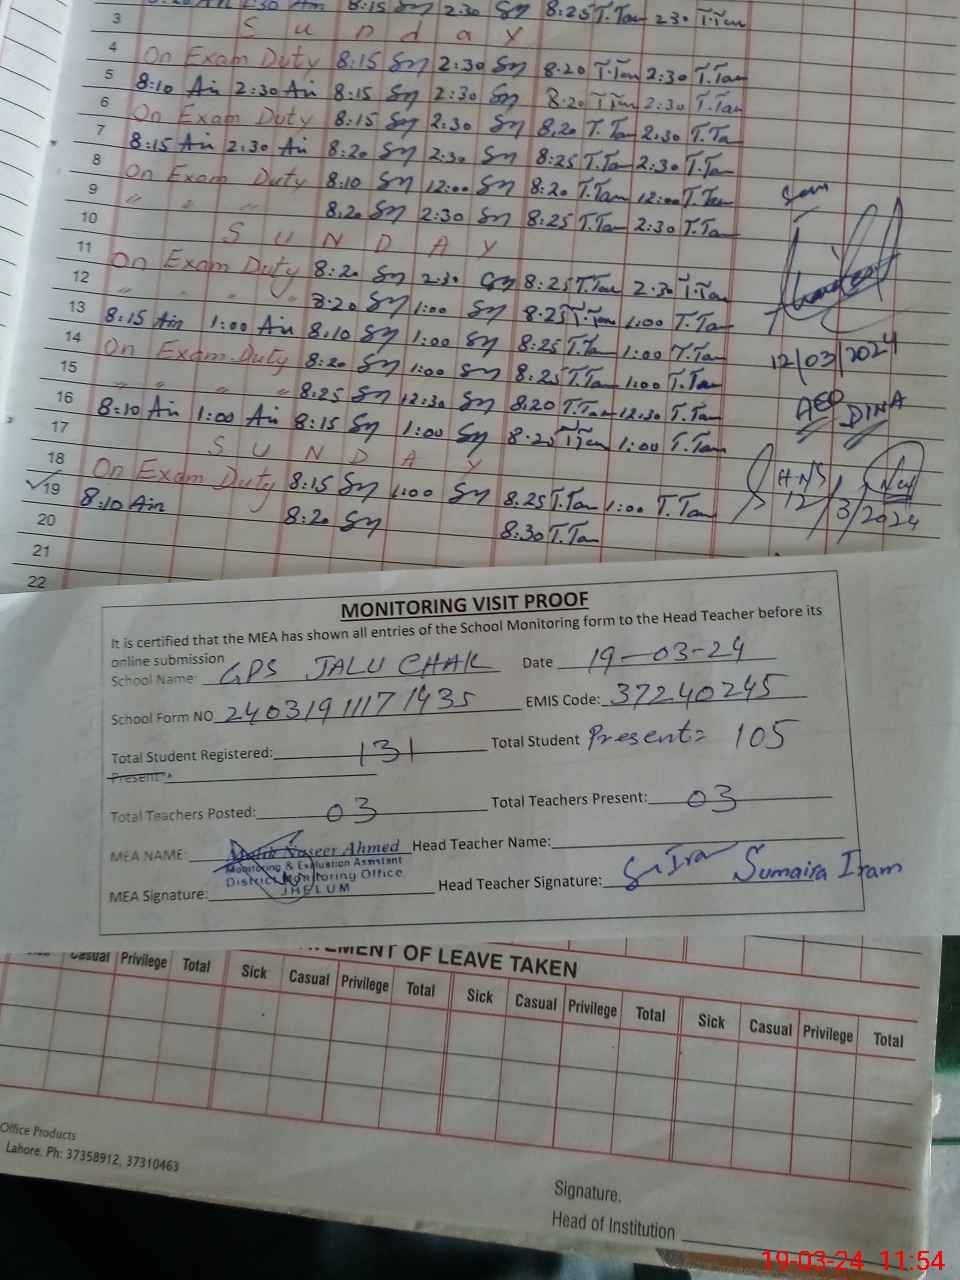 3 8:15 Sny 2:30 Sny 8:25 T.Tan 2:30 T.Tan
S u n d a y
4 On Exam Duty 8:15 Sny 2:30 Sny 8:20 T.Tan 2:30 T.Tan
5 8:10 Ain 2:30 Ain 8:15 Sny 2:30 Sny 8:20 T.Tan 2:30 T.Tan
6 On Exam Duty 8:15 Sny 2:30 Sny 8.20 T.Tan 2:30 T.Ta
7 8:15 Ain 2:30 Ain 8:20 Sny 2:30 Sny 8:25 T.Tan 2:30 T.Tan
8 On Exam Duty 8:10 Sny 12:00 Sny 8:20 T.Tan 12:00 T.Tan
9 " " " 8.20 Sny 2:30 Sny 8:25 T.Tan 2:30 T.Tan
10 S U N D A Y
11 On Exam Duty 8:20 Sny 2:30 Sny 8:25 T.Tan 2:30 T.Tan
12 " " " " 8:20 Sny 1:00 Sny 8:25 T.Tan 1:00 T.Tan
13 8:15 Ain 1:00 Ain 8:10 Sny 1:00 Sny 8:25 T.Tan 1:00 T.Tan
14 On Exam Duty 8:20 Sny 1:00 Sny 8:25 T.Tan 1:00 T.Tan
15 " " " " 8:25 Sny 12:30 Sny 8:20 T.Tan 12:30 T.Tan
16 8:10 Ain 1:00 Ain 8:15 Sny 1:00 Sny 8:20 T.Tan 1:00 T.Tan
17 S U N D A Y
18 On Exam Duty 8:15 Sny 1:00 Sny 8:25 T.Tan 1:00 T.Tan
19 8:10 Ain 8:20 Sny 8:30 T.Tan
20
21
22
12/03/2024
AEO DINA
12/3/2024
MONITORING VISIT PROOF
It is certified that the MEA has shown all entries of the School Monitoring form to the Head Teacher before its
online submission
School Name: GPS JALU CHAK Date 19-03-24
School Form NO 24031911171435 EMIS Code: 37240245
Total Student Registered: 131 Total Student Present= 105
Present:
Total Teachers Posted: 03 Total Teachers Present: 03
MEA NAME: Malik Naseer Ahmed Head Teacher Name:
Monitoring & Evaluation Assistant
District Monitoring Office
JHELUM
MEA Signature: Head Teacher Signature: S.Iram Sumaira Iram
EMENT OF LEAVE TAKEN
Casual Privilege Total Sick Casual Privilege Total Sick Casual Privilege Total Sick Casual Privilege Total
Office Products
Lahore. Ph: 37358912, 37310463
Signature,
Head of Institution
19-03-24 11:54